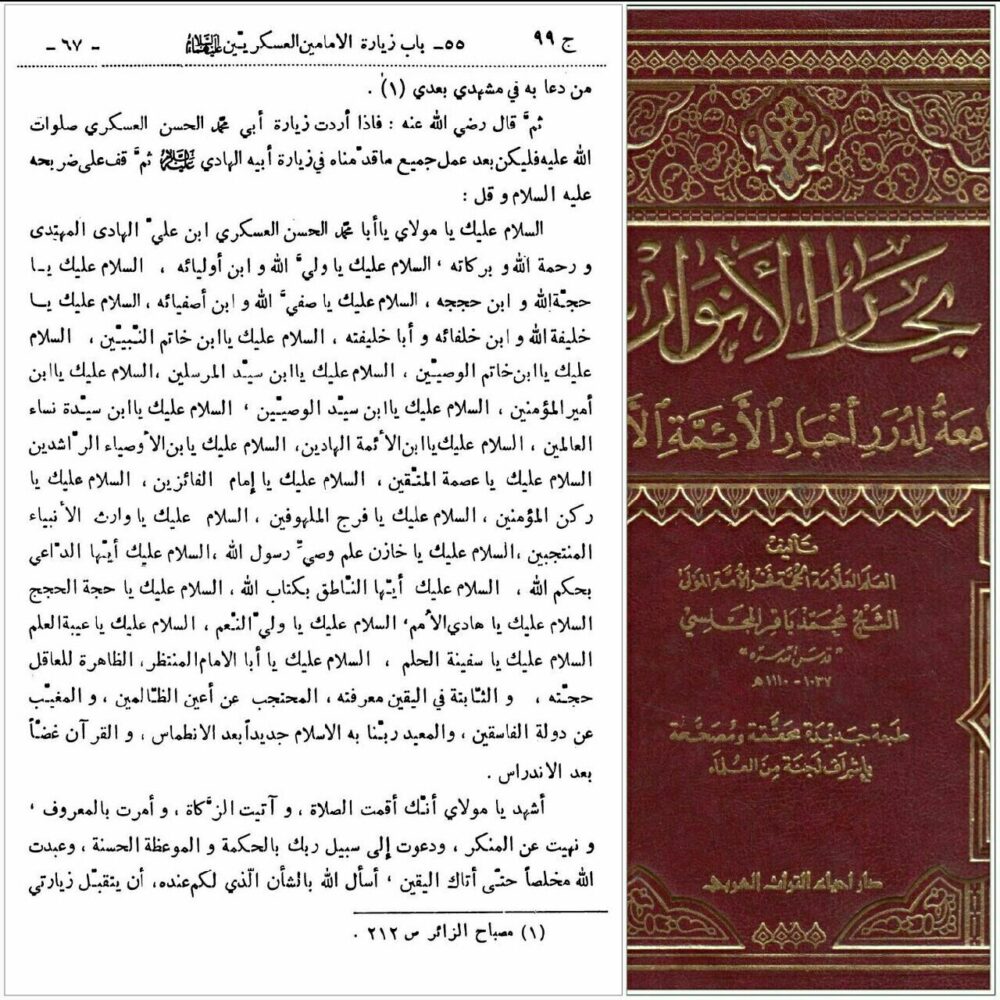 ج ٩٩
٥٥ ـ باب زيارة الامامين العسكريّين عليهما السلام
ـ ٦٧ ـ
من دعا به في مشهدي بعدي (١) .
ثمَّ قال رضي الله عنه : فاذا أردت زيارة أبي محمّد الحسن العسكري صلوات
الله عليه فليكن بعد عمل جميع ما قدّمناه في زيارة أبيه الهادي عليه السلام ثمَّ قف على ضريحه
عليه السلام و قل :
السلام عليك يا مولاي يا أبا محمّد الحسن العسكري ابن عليّ الهادى المهتدى
و رحمة الله و بركاته ، السلام عليك يا وليَّ الله و ابن أوليائه ، السلام عليك يـا
حجّة الله و ابن حججه ، السلام عليك يا صفيَّ الله و ابن أصفيائه ، السلام عليك يـا
خليفة الله و ابن خلفائه و أبا خليفته ، السلام عليك يا ابن خاتم النّبيّين ، السلام
عليك يا ابن خاتم الوصيّين ، السلام عليك يا ابن سيّد المرسلين ،السلام عليك يا ابن
أمير المؤمنين ، السلام عليك يا ابن سيّد الوصيّين ، السلام عليك يا ابن سيّدة نساء
العالمين ، السلام عليك يا ابن الأئمة الهادين، السلام عليك يا بن الأوصياء الرّاشدين
السلام عليك يا عصمة المتّقين ، السلام عليك يا إمام الفائزين ، السلام عليك يا
ركن المؤمنين ، السلام عليك يا فرج الملهوفين ، السلام عليك يا وارث الأنبياء
المنتجبين ،السلام عليك يا خازن علم وصيِّ رسول الله ،السلام عليك أيّها الدّاعي
بحكم الله ، السلام عليك أيّها النّاطق بكتاب الله ، السلام عليك يا حجة الحجج
السلام عليك يا هادي الأمم، السلام عليك يا وليّ النّعم ، السلام عليك يا عيبة العلم
السلام عليك يا سفينة الحلم ، السلام عليك يا أبا الامام المنتظر، الظاهرة للعاقل
حجّته ، و الثّابتة في اليقين معرفته ، المحتجب عن أعين الظّالمين ، و المغيّب
عن دولة الفاسقين ، والمعيد ربّنا به الاسلام جديداً بعد الانطماس ، و القرآن غضّاً
بعد الاندراس .
أشهد يا مولاي أنّك أقمت الصلاة ، و آتيت الزَّكاة ، و أمرت بالمعروف ،
و نهيت عن المنكر ، ودعوت إلى سبيل ربك بالحكمة و الموعظة الحسنة ، وعبدت
الله مخلصاً حتّى أتاك اليقين ، أسأل الله بالشأن الّذي لكم عنده، أن يتقبّل زيارتي
(١) مصباح الزائر ص ٢١٢ .
بحار الأنوار
امعة لدرر أخبار الأئمة الأ
تأليف
العلم العلامة الحجة فخر الأمة المولى
الشيخ محمد باقر المجلسي
"قدس سره"
١٠٣٧ - ١١١٠ هـ
طبعة جديدة محققة ومصححة
بإشراف لجنة من العلماء
دار احياء التراث العربي